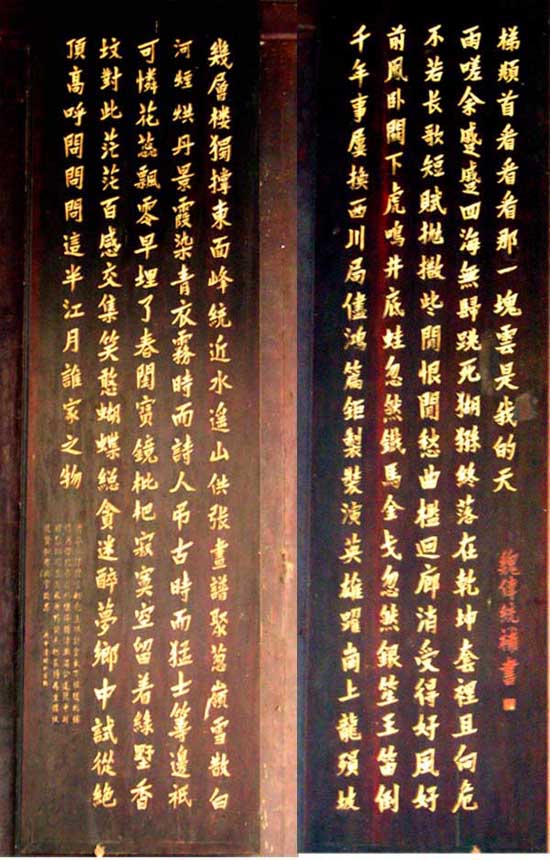 幾層楼獨撐東面峰統近水遙山供張畫譜聚蔥嶺雪散白
河煙烘丹景霞染青衣霧時而詩人吊古時而猛士籌邊祇
可憐花蕊飄零早埋了春閨寶鏡枇杷寂寞空留着綠墅香
墳對此茫茫百感交集笑憨蝴蝶總貪迷醉夢鄉中試從絕
頂高呼問問問這半江月誰家之物
千年事屢換西川局儘鴻篇鉅製裝演英雄躍崗上龍殞坡
前鳳卧關下虎鳴井底蛙忽然鐵馬金戈忽然銀笙玉笛倒
不若長歌短賦拋撒些閒恨閒愁曲檻迴廊消受得好風好
雨嗟余蹙蹙四海無歸跳死猢猻終落在乾坤套裡且向危
梯頫首看看看那一塊雲是我的天
魏傳統補書